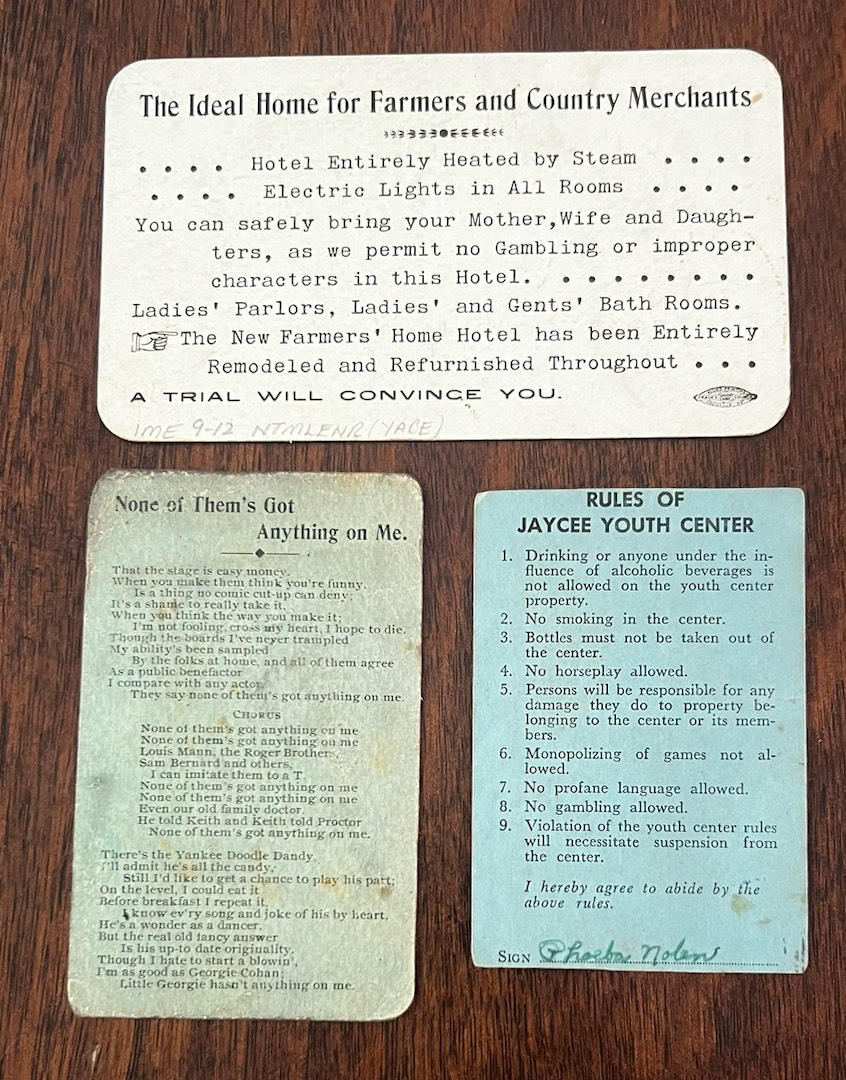 The Ideal Home for Farmers and Country Merchants
. . . . Hotel Entirely Heated by Steam . . . .
. . . . Electric Lights in All Rooms . . . .
You can safely bring your Mother,Wife and Daugh-
ters, as we permit no Gambling or improper
characters in this Hotel. . . . . . . . .
Ladies' Parlors, Ladies' and Gents' Bath Rooms.
The New Farmers' Home Hotel has been Entirely
Remodeled and Refurnished Throughout . . .
A TRIAL WILL CONVINCE YOU.
IME 9-12
None of Them's Got
Anything on Me.
That the stage is easy money.
When you make them think you're funny,
Is a thing no comic cut-up can deny;
It's a shame to really take it,
When you think the way you make it;
I'm not fooling, cross my heart, I hope to die.
Though the boards I've never trampled
My ability's been sampled
By the folks at home, and all of them agree
As a public benefactor
I compare with any actor,
They say none of them's got anything on me.
CHORUS
None of them's got anything on me
None of them's got anything on me
Louis Mann, the Roger Brothers,
Sam Bernard and others,
I can imitate them to a T.
None of them's got anything on me
None of them's got anything on me
Even our old family doctor.
He told Keith and Keith told Proctor
None of them's got anything on me.
There's the Yankee Doodle Dandy,
I'll admit he's all the candy,
Still I'd like to get a chance to play his part;
On the level, I could eat it
Before breakfast I repeat it,
I know ev'ry song and joke of his by heart,
He's a wonder as a dancer,
But the real old fancy answer
Is his up-to date originality.
Though I hate to start a blowin',
I'm as good as Georgie Cohan;
Little Georgie hasn't anything on me.
RULES OF
JAYCEE YOUTH CENTER
1. Drinking or anyone under the in-
fluence of alcoholic beverages is
not allowed on the youth center
property.
2. No smoking in the center.
3. Bottles must not be taken out of
the center.
4. No horseplay allowed.
5. Persons will be responsible for any
damage they do to property be-
longing to the center or its mem-
bers.
6. Monopolizing of games not al-
lowed.
7. No profane language allowed.
8. No gambling allowed.
9. Violation of the youth center rules
will necessitate suspension from
the center.
I hereby agree to abide by the
above rules.
SIGN Phoeba Nolen